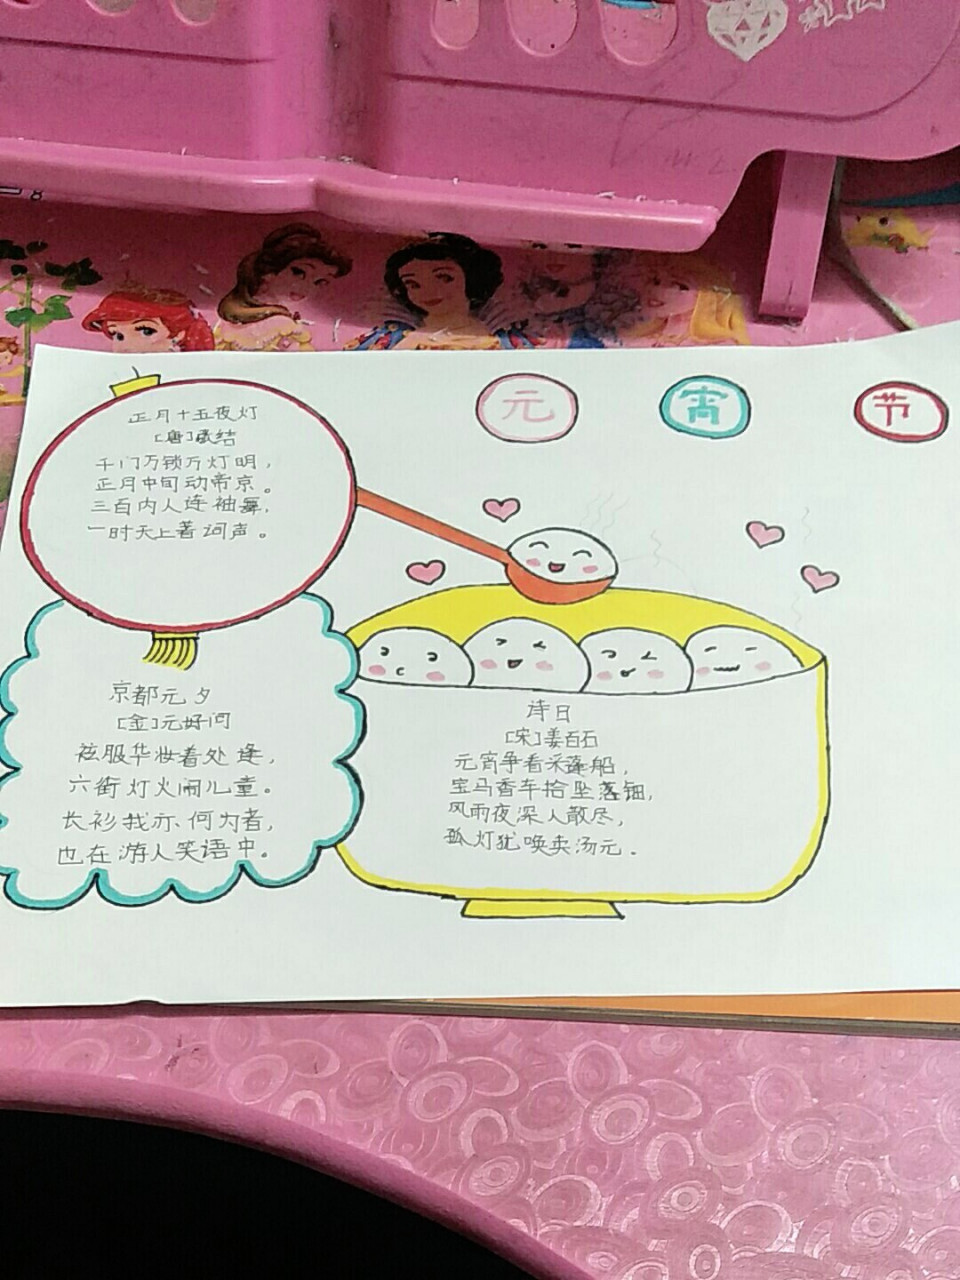 元 宵 节
正月十五夜灯
[唐]承结
千门万锁万灯明，
正月中旬动帝京。
三百内人连袖舞，
一时天上著词声。
京都元夕
[金]元好问
袨服华妆着处逢，
六街灯火闹儿童。
长衫我亦何为者，
也在游人笑语中。
诗曰
[宋]姜白石
元宵争看采莲船，
宝马香车拾坠落钿，
风雨夜深人散尽，
孤灯犹唤卖汤元.